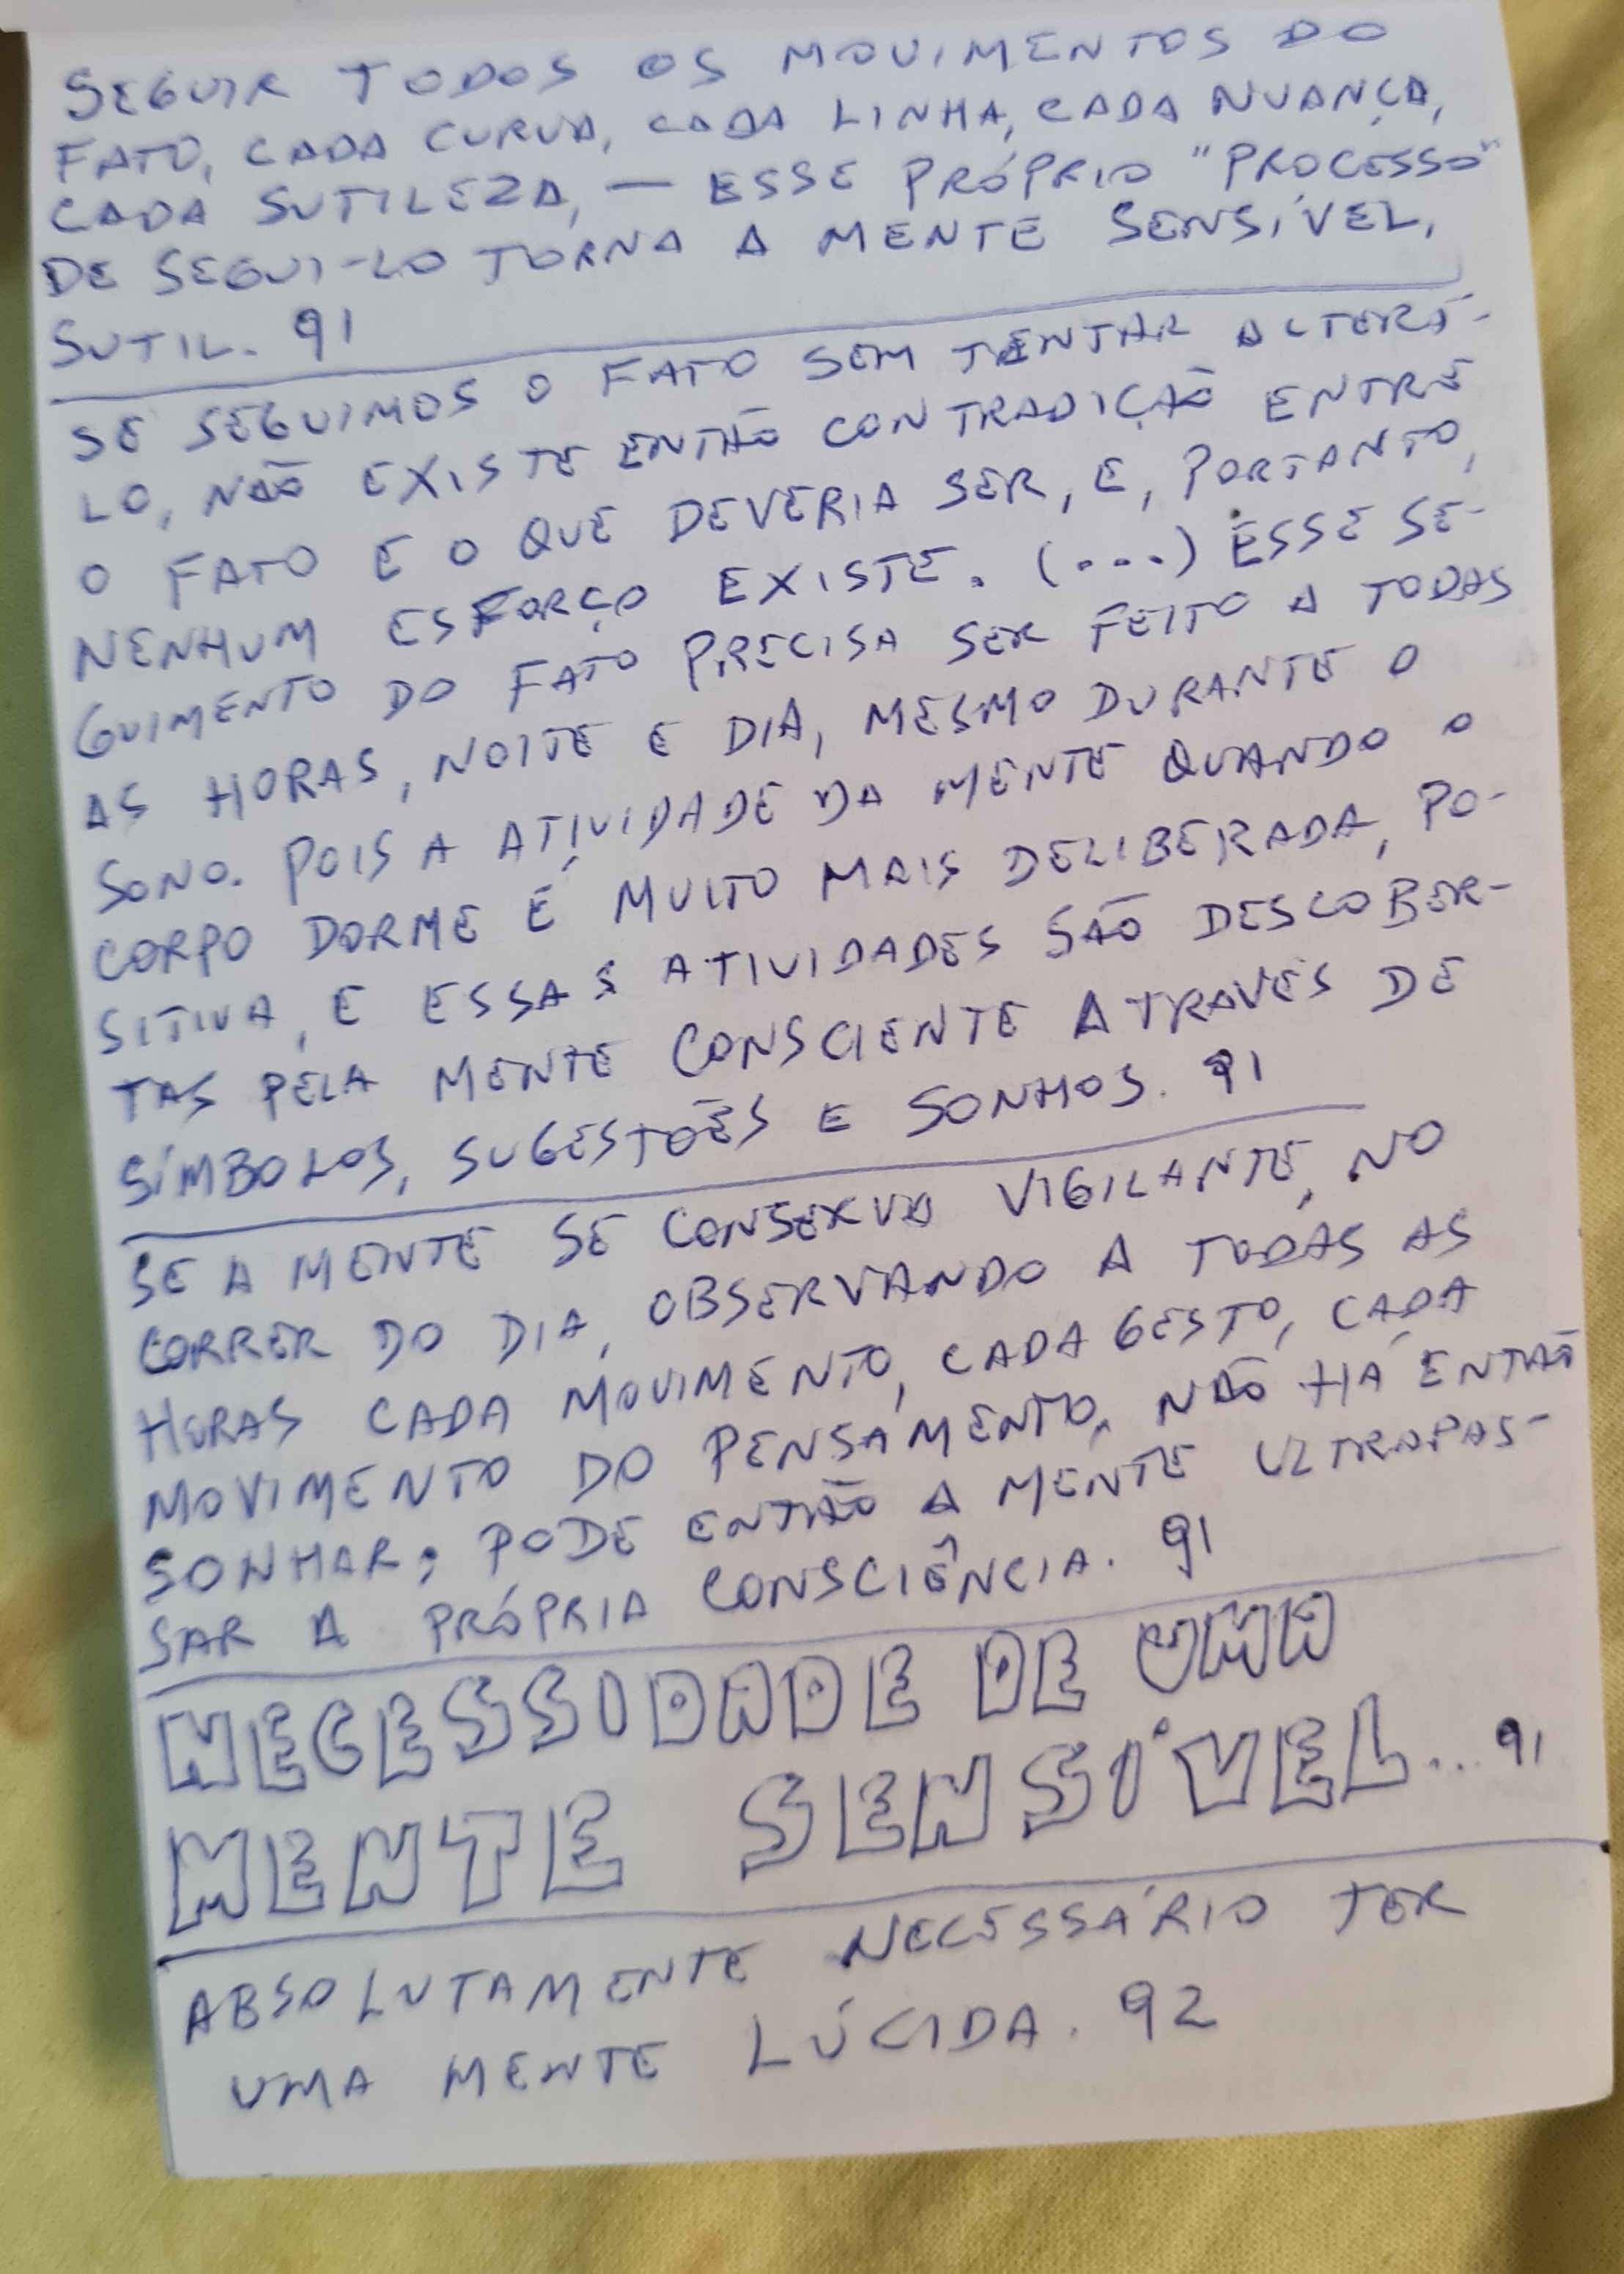 SEGUIR TODOS OS MOVIMENTOS DO
FATO, CADA CURVA, CADA LINHA, CADA NUANÇA,
CADA SUTILEZA, — ESSE PRÓPRIO "PROCESSO"
DE SEGUI-LO TORNA A MENTE SENSÍVEL,
SUTIL. 91
SE SEGUIMOS O FATO SEM TENTAR ALTERÁ-
LO, NÃO EXISTE ENTÃO CONTRADIÇÃO ENTRE
O FATO E O QUE DEVERIA SER, E, PORTANTO,
NENHUM ESFORÇO EXISTE. (...) ESSE SE-
GUIMENTO DO FATO PRECISA SER FEITO A TODAS
AS HORAS, NOITE E DIA, MESMO DURANTE O
SONO. POIS A ATIVIDADE DA MENTE QUANDO O
CORPO DORME É MUITO MAIS DELIBERADA, PO-
SITIVA, E ESSAS ATIVIDADES SÃO DESCOBER-
TAS PELA MENTE CONSCIENTE ATRAVÉS DE
SÍMBOLOS, SUGESTÕES E SONHOS. 91
SE A MENTE SE CONSERVA VIGILANTE, NO
CORRER DO DIA, OBSERVANDO A TODAS AS
HORAS CADA MOVIMENTO, CADA GESTO, CADA
MOVIMENTO DO PENSAMENTO, NÃO HÁ ENTÃO
SONHAR; PODE ENTÃO A MENTE ULTRAPAS-
SAR A PRÓPRIA CONSCIÊNCIA. 91
NECESSIDADE DE UMA
MENTE SENSÍVEL... 91
ABSOLUTAMENTE NECESSÁRIO TER
UMA MENTE LÚCIDA. 92